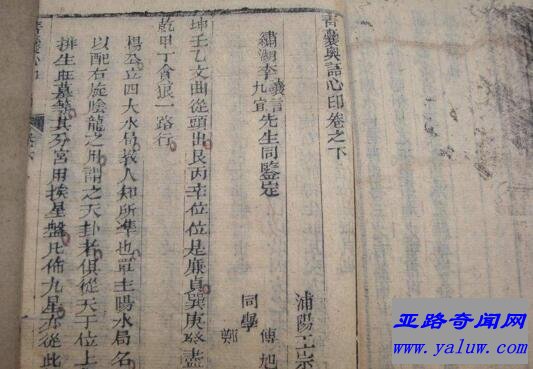 青囊奧語心印卷之下
浦陽王宗
繡湖李羲言九宜先生同鑒定
同學
傅旭
鄭
坤壬乙文曲從頭出艮丙辛位位是廉貞巽庚癸盡
乾甲丁貪狼一路行
楊公立四大水局教人知所準也 主陽水局名
以配右旋陰龍之用謂之天卦者俱從天干位上
排生旺墓等其分宮用挨星盤凡佈九星亦從此
亚路奇闻网
www.yaluw.com